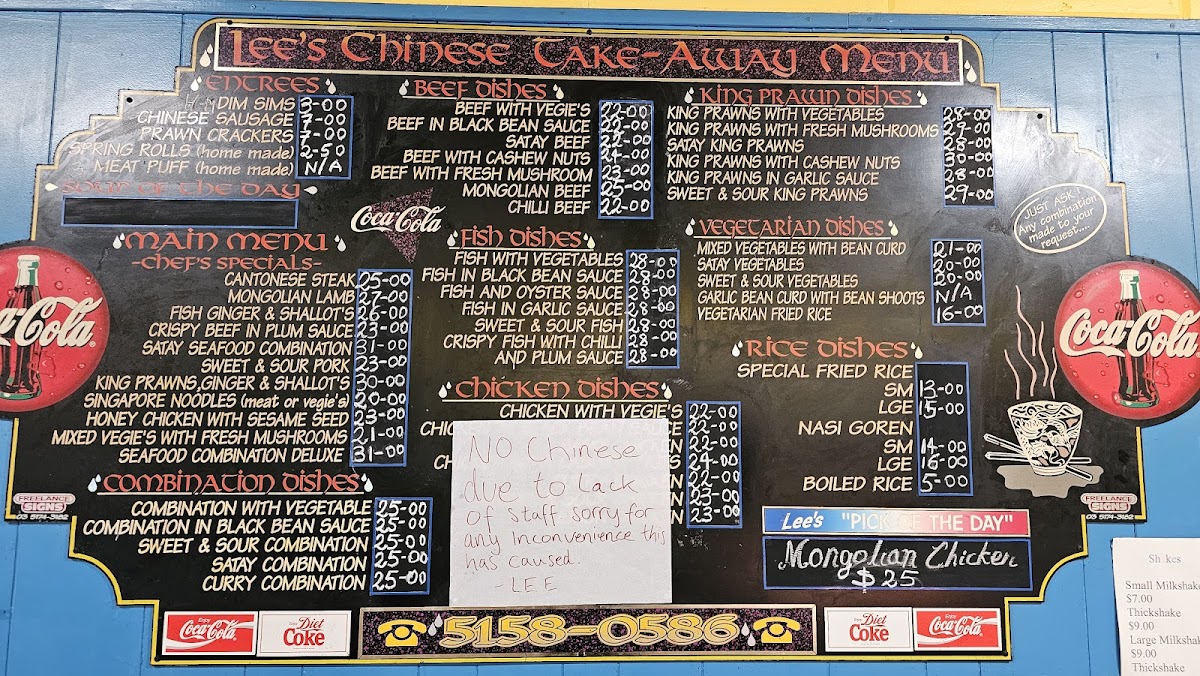 LEE'S CHINESE TAKE-AWAY MENU
ENTREES
DIM SIMS 3-00
CHINESE SAUSAGE 7-00
PRAWN CRACKERS 7-00
SPRING ROLLS (home made) 2-50
MEAT PUFF (home made) N/A
SOUP OF THE DAY
MAIN MENU
-CHEF'S SPECIALS-
CANTONESE STEAK 25-00
MONGOLIAN LAMB 27-00
FISH GINGER & SHALLOT'S 26-00
CRISPY BEEF IN PLUM SAUCE 23-00
SATAY SEAFOOD COMBINATION 31-00
SWEET & SOUR PORK 23-00
KING PRAWNS,GINGER & SHALLOT'S 30-00
SINGAPORE NOODLES (meat or vegie's) 20-00
HONEY CHICKEN WITH SESAME SEED 23-00
MIXED VEGIE'S WITH FRESH MUSHROOMS 21-00
SEAFOOD COMBINATION DELUXE 31-00
COMBINATION DISHES
COMBINATION WITH VEGETABLE 25-00
COMBINATION IN BLACK BEAN SAUCE 25-00
SWEET & SOUR COMBINATION 25-00
SATAY COMBINATION 25-00
CURRY COMBINATION 25-00
FREELANCE
SIGNS
03 5174-3182
BEEF DISHES
BEEF WITH VEGIE'S 22-00
BEEF IN BLACK BEAN SAUCE
SATAY BEEF 22-00
BEEF WITH CASHEW NUTS 24-00
BEEF WITH FRESH MUSHROOM 23-00
MONGOLIAN BEEF 25-00
CHILLI BEEF 22-00
Coca-Cola
FISH DISHES
FISH WITH VEGETABLES 28-00
FISH IN BLACK BEAN SAUCE 28-00
FISH AND OYSTER SAUCE 28-00
FISH IN GARLIC SAUCE 28-00
SWEET & SOUR FISH 28-00
CRISPY FISH WITH CHILLI 28-00
AND PLUM SAUCE 28-00
CHICKEN DISHES
CHICKEN WITH VEGIE'S 22-00
22-00
22-00
24-00
22-00
23-00
23-00
NO Chinese
due to Lack
of staff sorry for
any Inconvenience this
has caused.
- LEE
KING PRAWN DISHES
KING PRAWNS WITH VEGETABLES 28-00
KING PRAWNS WITH FRESH MUSHROOMS 29-00
SATAY KING PRAWNS 28-00
KING PRAWNS WITH CASHEW NUTS 30-00
KING PRAWNS IN GARLIC SAUCE 28-00
SWEET & SOUR KING PRAWNS 29-00
JUST ASK!
Any combination
made to your
request....
VEGETARIAN DISHES
MIXED VEGETABLES WITH BEAN CURD 21-00
SATAY VEGETABLES 20-00
SWEET & SOUR VEGETABLES 20-00
GARLIC BEAN CURD WITH BEAN SHOOTS N/A
VEGETARIAN FRIED RICE 16-00
RICE DISHES
SPECIAL FRIED RICE
SM 13-00
LGE 15-00
NASI GOREN
SM 14-00
LGE 16-00
BOILED RICE 5-00
FREELANCE
SIGNS
03 5174-3182
Lee's "PICK OF THE DAY"
Mongolian Chicken
$25
Coca-Cola
Coca-Cola
Enjoy
Coca-Cola
Diet
Coke
5158-0586
Diet
Coke
Enjoy
Coca-Cola
Small Milkshake
$7.00
Thickshake
$9.00
Large Milksha
$9.00
Thickshake